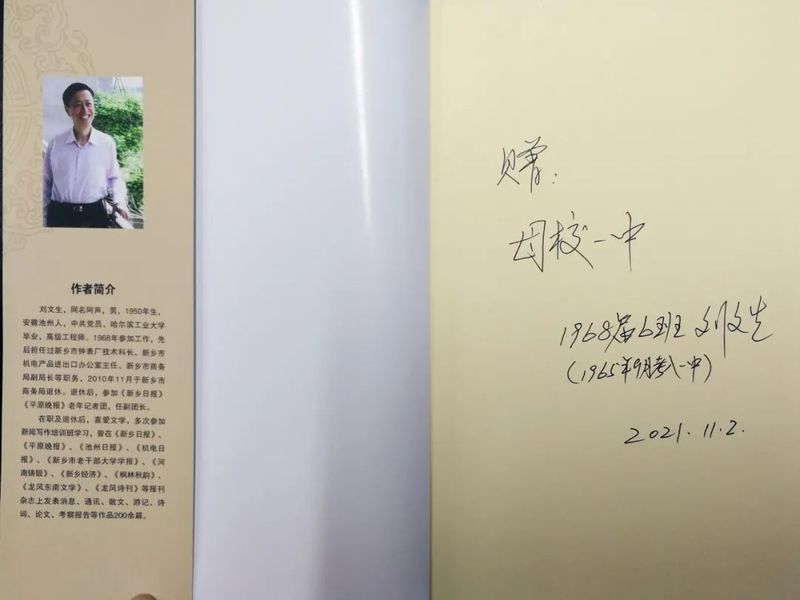 作者简介
刘文生，网名阿声，男，1950年生，
安徽池州人，中共党员，哈尔滨工业大学
毕业，高级工程师。1968年参加工作，先
后担任过新乡市钟表厂技术科长、新乡市
机电产品进出口办公室主任、新乡市商务
局副局长等职务，2010年11月于新乡市
商务局退休。退休后，参加《新乡日报》
《平原晚报》老年记者团，任副团长。
在职及退休后，喜爱文学，多次参加
新闻写作培训班学习，曾在《新乡日报》、
《平原晚报》、《池州日报》、《机电日
报》、《新乡市老干部大学学报》、《河
南铸锻》、《新乡经济》、《枫林秋韵》、
《龙凤东南文学》、《龙凤诗刊》等报刊
杂志上发表消息、通讯、散文、游记、诗
词、论文、考察报告等作品200余篇。
赠：
母校一中
1968届6班 刘文生
（1965年9月考入一中）
2021.11.2.